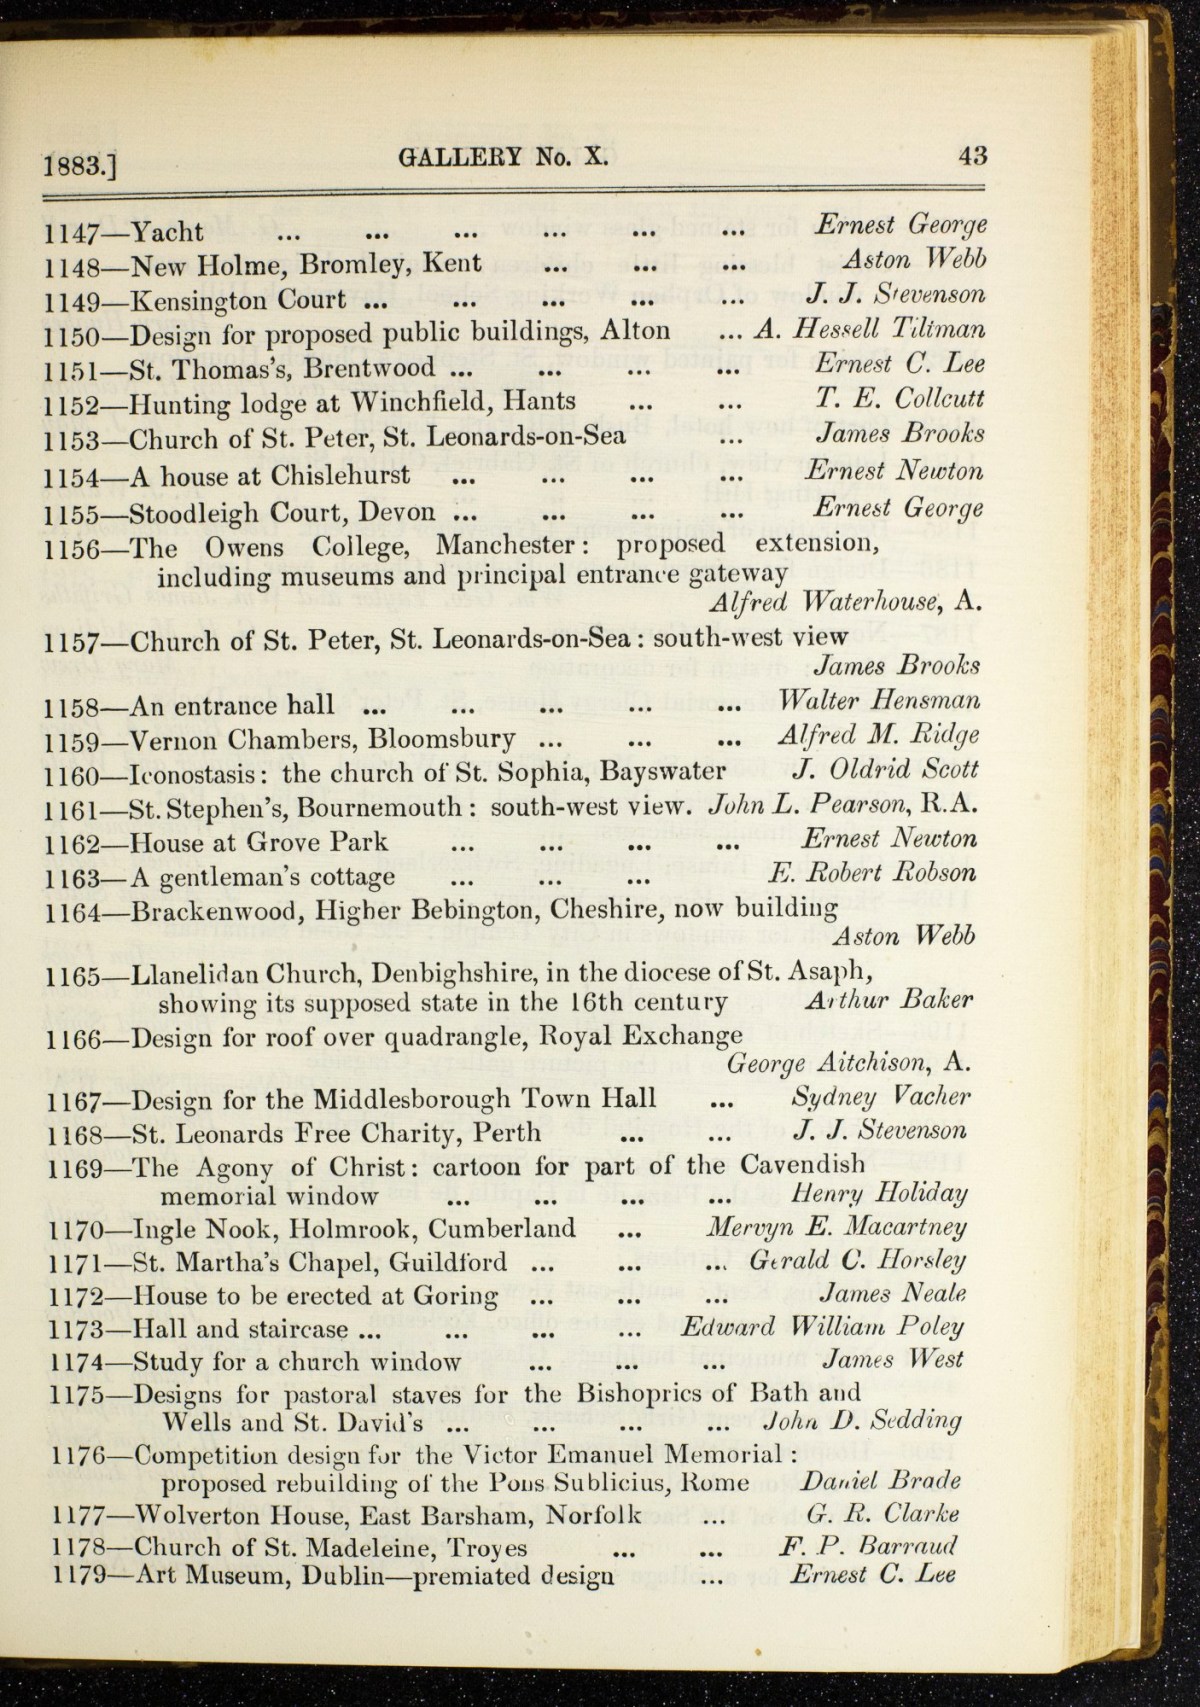 1883.] GALLERY No. X. 43
1147—Yacht ... ... ... ... ... ... Ernest George
1148—New Holme, Bromley, Kent ... ... ... Aston Webb
1149—Kensington Court ... ... ... ... ... J. J. Stevenson
1150—Design for proposed public buildings, Alton ... A. Hessell Tiltman
1151—St. Thomas's, Brentwood ... ... ... ... Ernest C. Lee
1152—Hunting lodge at Winchfield, Hants ... ... T. E. Collcutt
1153—Church of St. Peter, St. Leonards-on-Sea ... James Brooks
1154—A house at Chislehurst ... ... ... ... Ernest Newton
1155—Stoodleigh Court, Devon ... ... ... ... Ernest George
1156—The Owens College, Manchester: proposed extension,
including museums and principal entrance gateway
Alfred Waterhouse, A.
1157—Church of St. Peter, St. Leonards-on-Sea: south-west view
James Brooks
1158—An entrance hall ... ... ... ... ... Walter Hensman
1159—Vernon Chambers, Bloomsbury ... ... ... Alfred M. Ridge
1160—Iconostasis: the church of St. Sophia, Bayswater J. Oldrid Scott
1161—St. Stephen's, Bournemouth: south-west view. John L. Pearson, R.A.
1162—House at Grove Park ... ... ... ... Ernest Newton
1163—A gentleman's cottage ... ... ... E. Robert Robson
1164—Brackenwood, Higher Bebington, Cheshire, now building
Aston Webb
1165—Llanelidan Church, Denbighshire, in the diocese of St. Asaph,
showing its supposed state in the 16th century Arthur Baker
1166—Design for roof over quadrangle, Royal Exchange
George Aitchison, A.
1167—Design for the Middlesborough Town Hall ... Sydney Vacher
1168—St. Leonards Free Charity, Perth ... ... J. J. Stevenson
1169—The Agony of Christ: cartoon for part of the Cavendish
memorial window ... ... ... ... Henry Holiday
1170—Ingle Nook, Holmrook, Cumberland ... Mervyn E. Macartney
1171—St. Martha's Chapel, Guildford ... ... ... Gerald C. Horsley
1172—House to be erected at Goring ... ... ... James Neale
1173—Hall and staircase ... ... ... ... Edward William Poley
1174—Study for a church window ... ... ... James West
1175—Designs for pastoral staves for the Bishoprics of Bath and
Wells and St. David's ... ... ... ... John D. Sedding
1176—Competition design for the Victor Emanuel Memorial:
proposed rebuilding of the Pons Sublicius, Rome Daniel Brade
1177—Wolverton House, East Barsham, Norfolk ... G. R. Clarke
1178—Church of St. Madeleine, Troyes ... ... F. P. Barraud
1179—Art Museum, Dublin—premiated design ... Ernest C. Lee